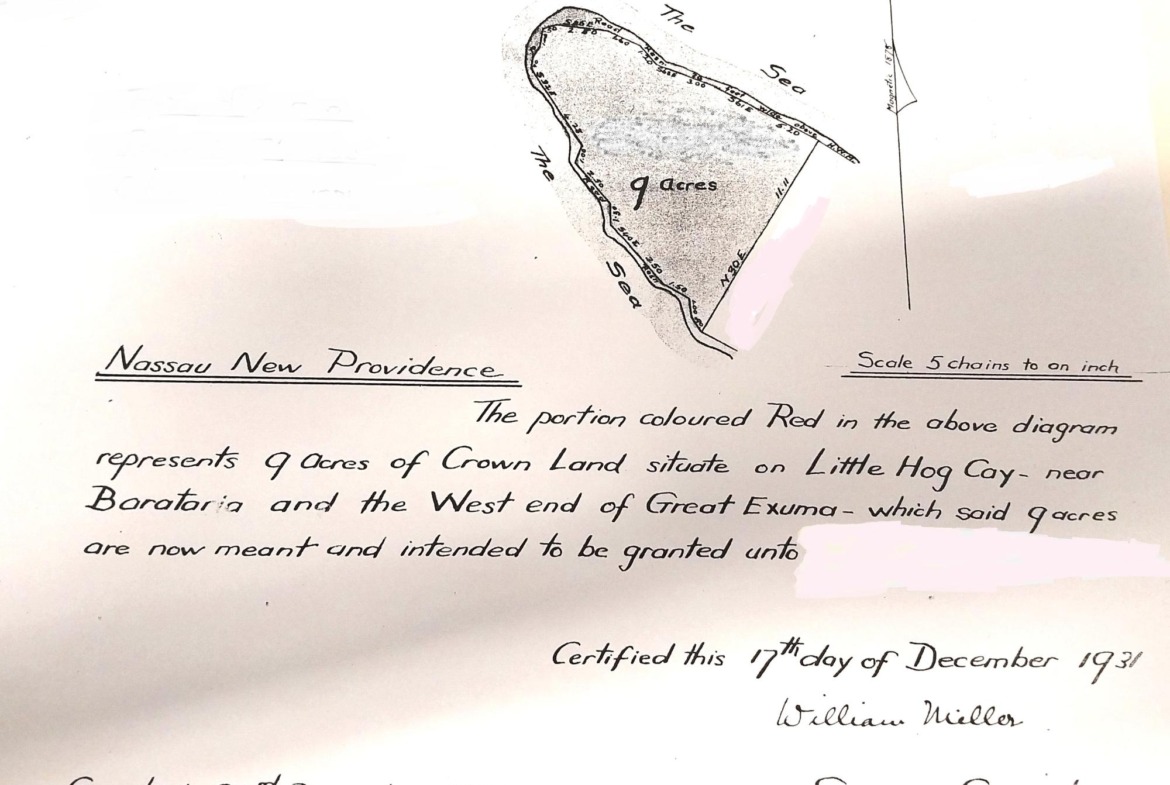 The
Sea
Road
Magnetic 1875
The
9 Acres
11.11
N 30 E
Sea
Nassau New Providence
Scale 5 chains to an inch
The portion coloured Red in the above diagram
represents 9 Acres of Crown Land situate on Little Hog Cay- near
Barataria and the West end of Great Exuma- which said 9 acres
are now meant and intended to be granted unto
Certified this 17th day of December 1931
William Miller